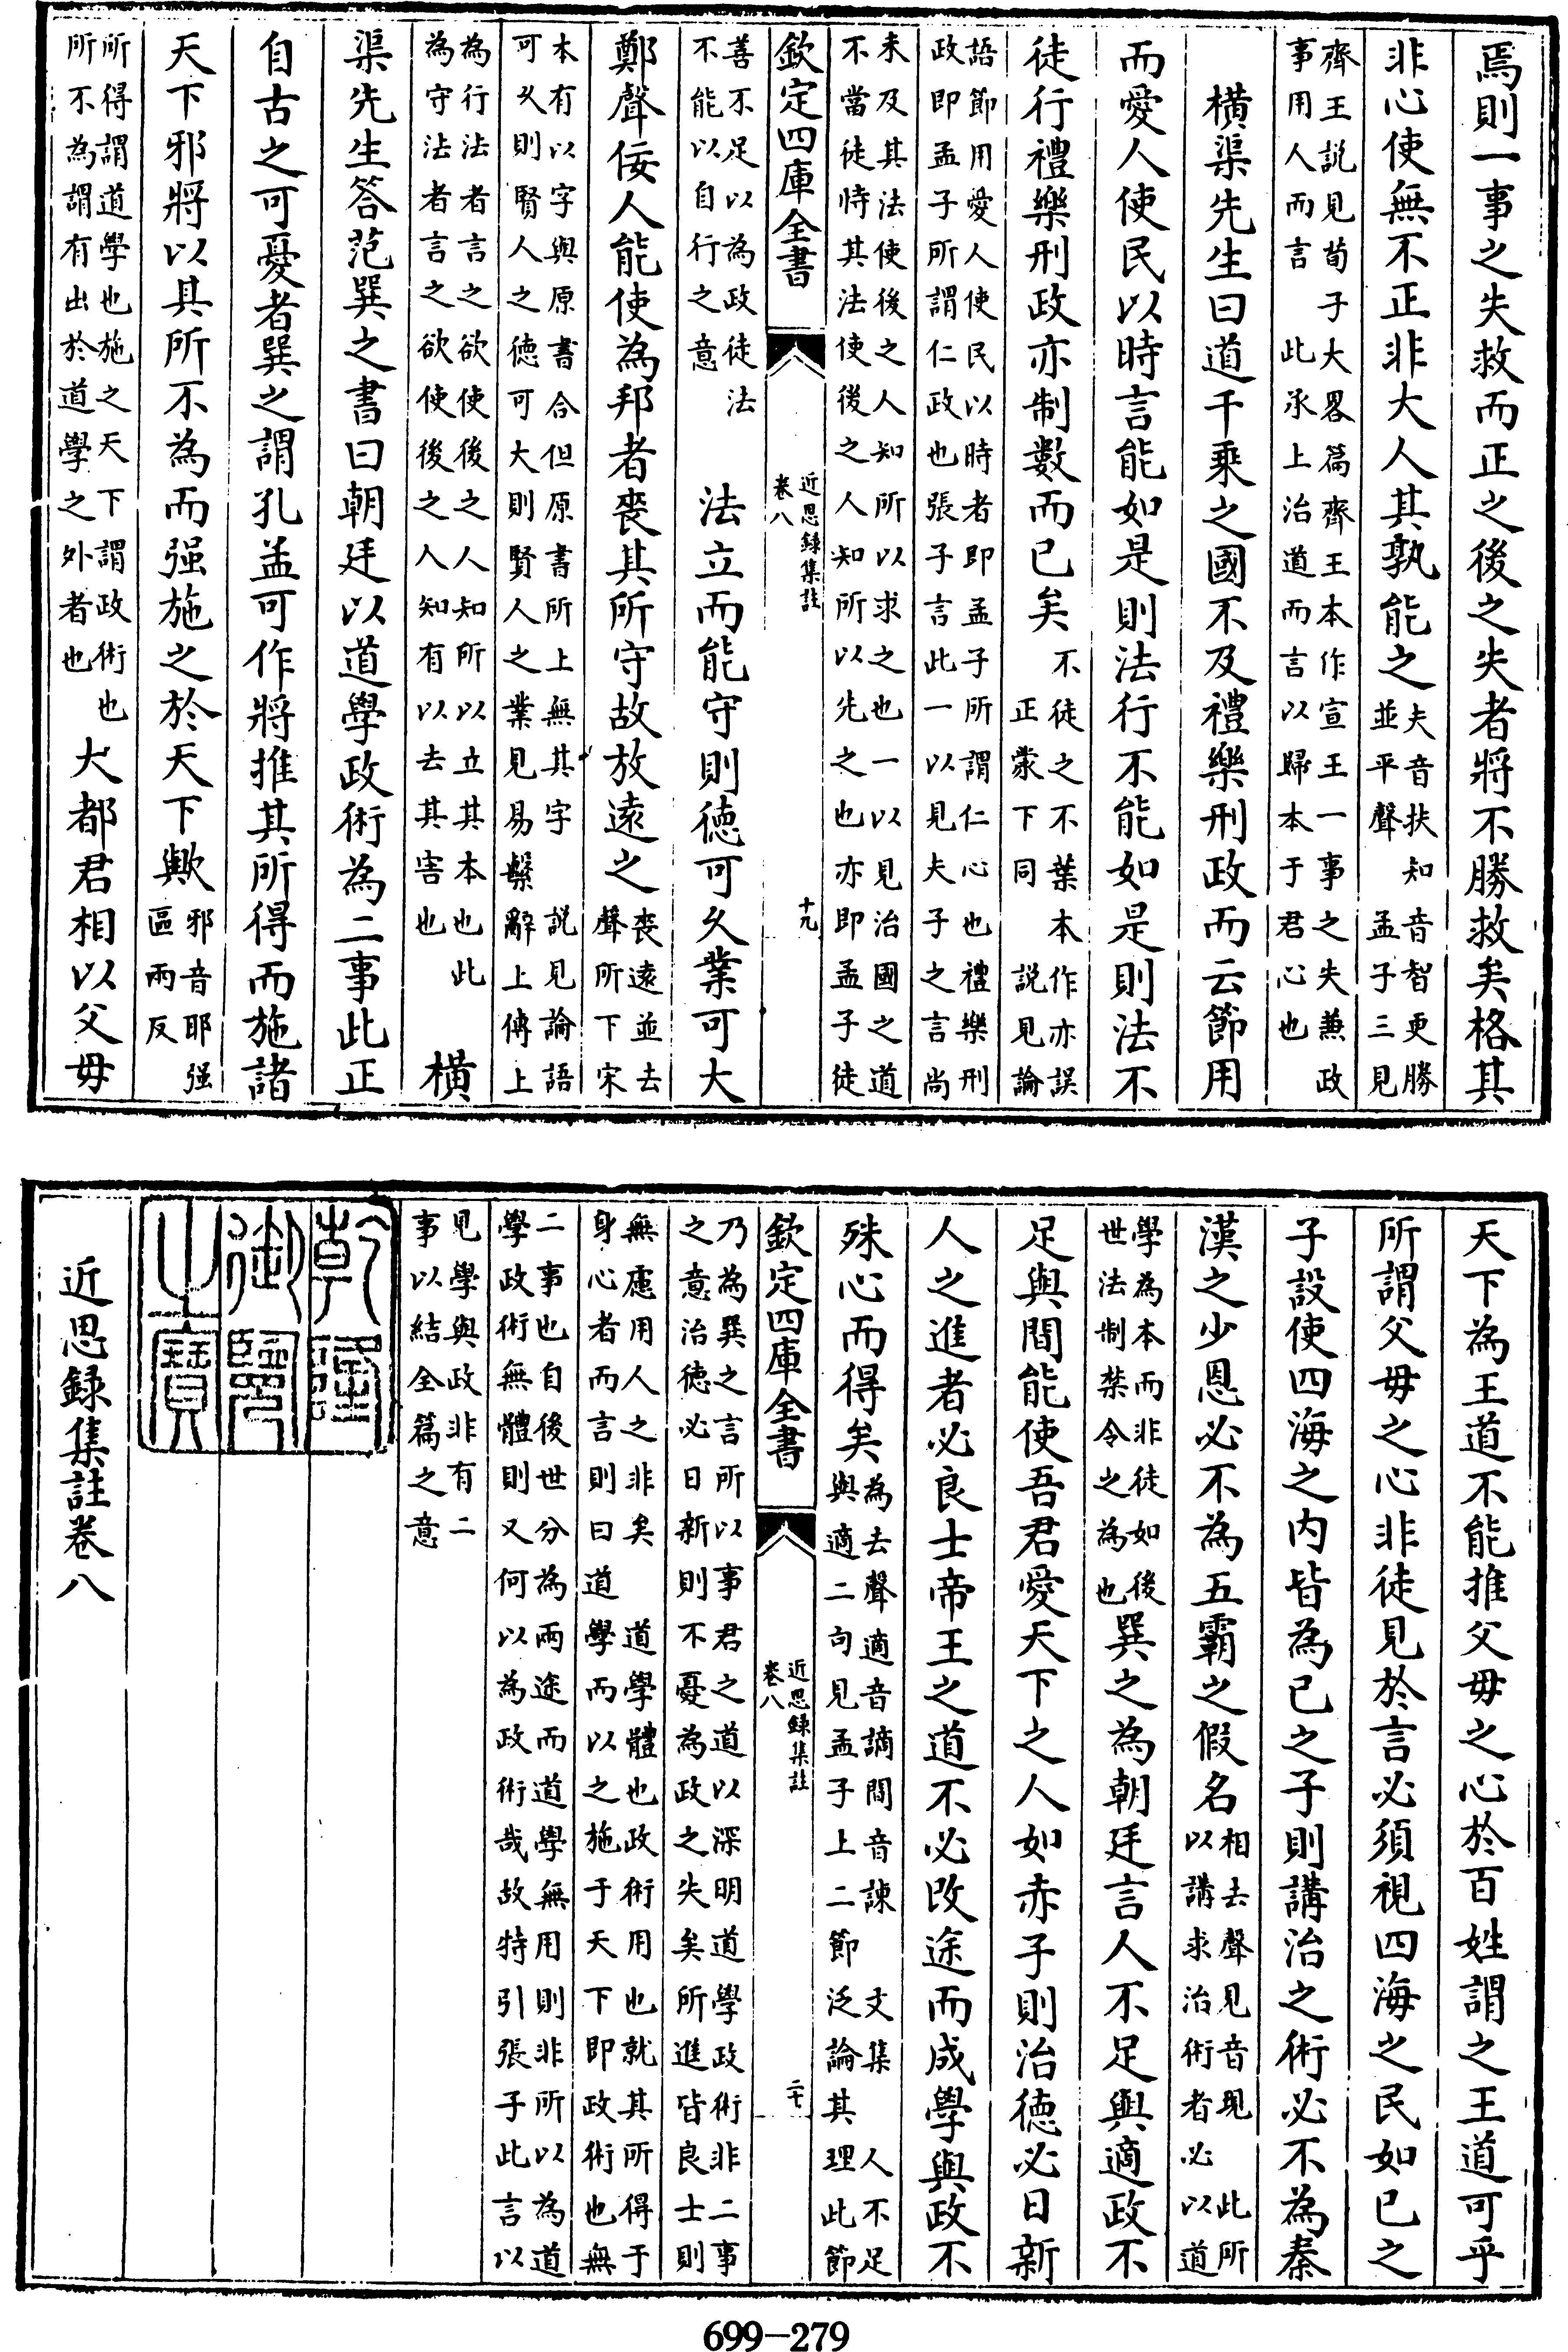 焉則一事之失救而正之後之失者將不勝救矣格其
非心使無不正非大人其孰能之夫音扶知音智更勝
並平聲孟子三見
齊王説見荀子大畧篇齊王本作宣王一事之失兼政
事用人而言此承上治道而言以歸本于君心也
橫渠先生曰道千乘之國不及禮樂刑政而云節用
而愛人使民以時言能如是則法行不能如是則法不
徒行禮樂刑政亦制數而已矣不徒之不葉本作亦誤
正蒙下同説見論
語節用愛人使民以時者即孟子所謂仁心也禮樂刑
政即孟子所謂仁政也張子言此一以見夫子之言尚
未及其法使後之人知所以求之也一以見治國之道
不當徒恃其法使後之人知所以先之也亦即孟子徒
欽定四庫全書
近思録集註
卷八
十九
善不足以為政徒法
不能以自行之意
法立而能守則德可久業可大
鄭聲佞人能使為邦者喪其所守故放遠之喪遠並去
聲所下宋
本有以字與原書合但原書所上無其字説見論語
可久則賢人之德可大則賢人之業見易繫辭上傳上
為行法者言之欲使後之人知所以立其本也此
為守法者言之欲使後之人知有以去其害也
橫
渠先生答范巽之書曰朝廷以道學政術為二事此正
自古之可憂者巽之謂孔孟可作將推其所得而施諸
天下邪將以其所不為而强施之於天下歟邪音耶强
區兩反
所得謂道學也施之天下謂政術也
所不為謂有出於道學之外者也
大都君相以父母
天下為王道不能推父母之心於百姓謂之王道可乎
所謂父母之心非徒見於言必須視四海之民如己之
子設使四海之内皆為己之子則講治之術必不為秦
漢之少恩必不為五霸之假名相去聲見音現此所
以講求治術者必以道
學為本而非徒如後
世法制禁令之為也
巽之為朝廷言人不足與適政不
足與間能使吾君愛天下之人如赤子則治德必日新
人之進者必良士帝王之道不必改途而成學與政不
殊心而得矣為去聲適音謫間音諫文集人不足
與適二句見孟子上二節泛論其理此節
欽定四庫全書
近思録集註
卷八
二十
乃為巽之言所以事君之道以深明道學政術非二事
之意治德必日新則不憂為政之失矣所進皆良士則
無慮用人之非矣道學體也政術用也就其所得于
身心者而言則曰道學而以之施于天下即政術也無
二事也自後世分為兩途而道學無用則非所以為道
學政術無體則又何以為政術哉故特引張子此言以
見學與政非有二
事以結全篇之意
乾隆
御覽
之寶
近思録集註卷八
699-279